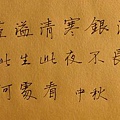 溢清寒銀
此生此夜不長
何處看 中秋